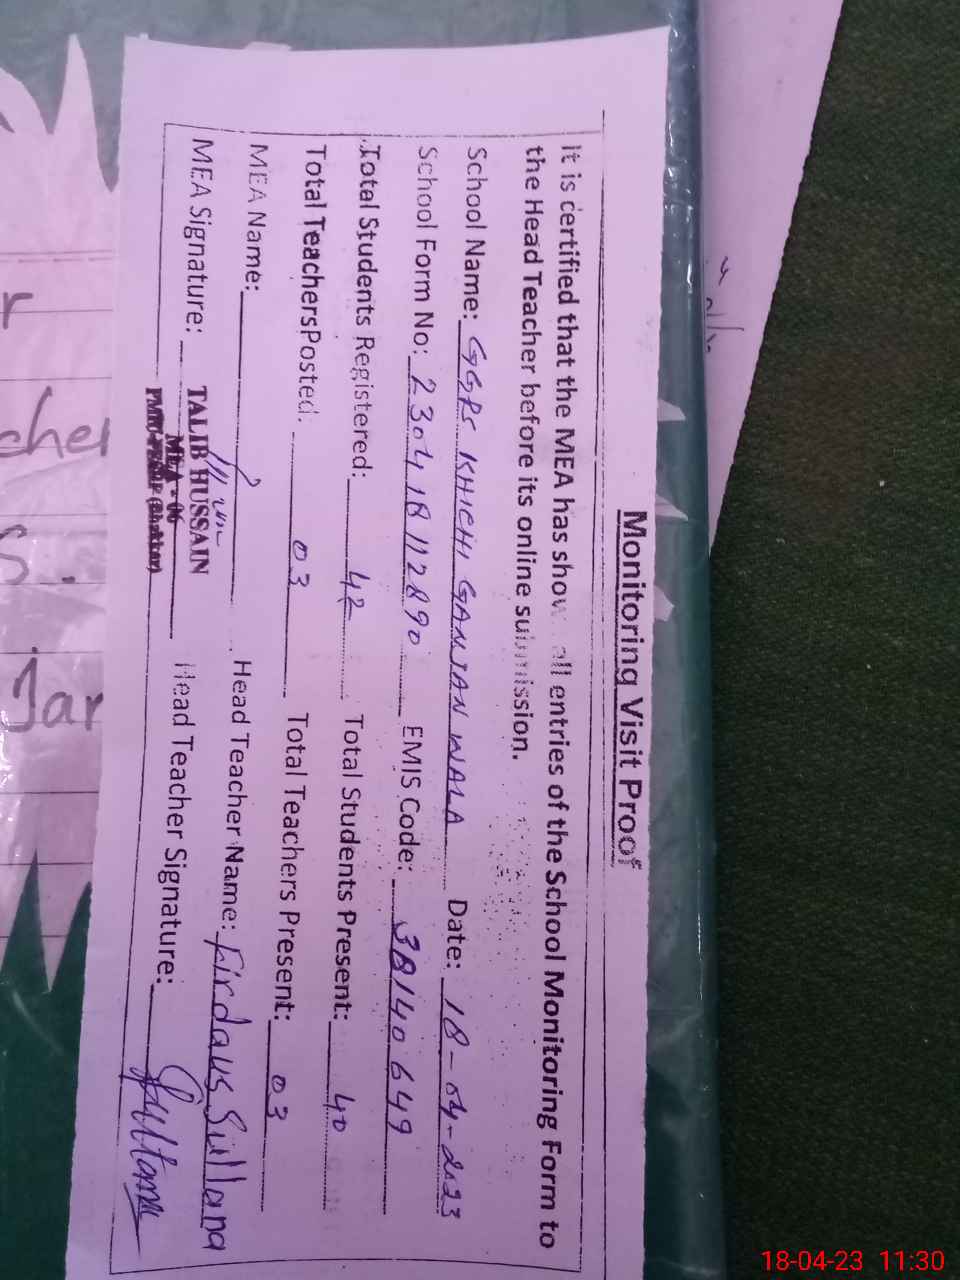 Monitoring Visit Proof
It is certified that the MEA has show all entries of the School Monitoring Form to
the Head Teacher before its online submission.
School Name: GGPS KHICHI GANJAN WALA Date: 18-04-2023
School Form No: 230418112890 EMIS Code: 38140649
Total Students Registered: 42 Total Students Present: 40
Total TeachersPosted: 03 Total Teachers Present: 03
MEA Name: Head Teacher Name: Firdaus Sultana
MEA Signature: Head Teacher Signature: Sultana
TALIB HUSSAIN
MEA - 06
(Bhakkar)
cher
S.
Jar
18-04-23 11:30